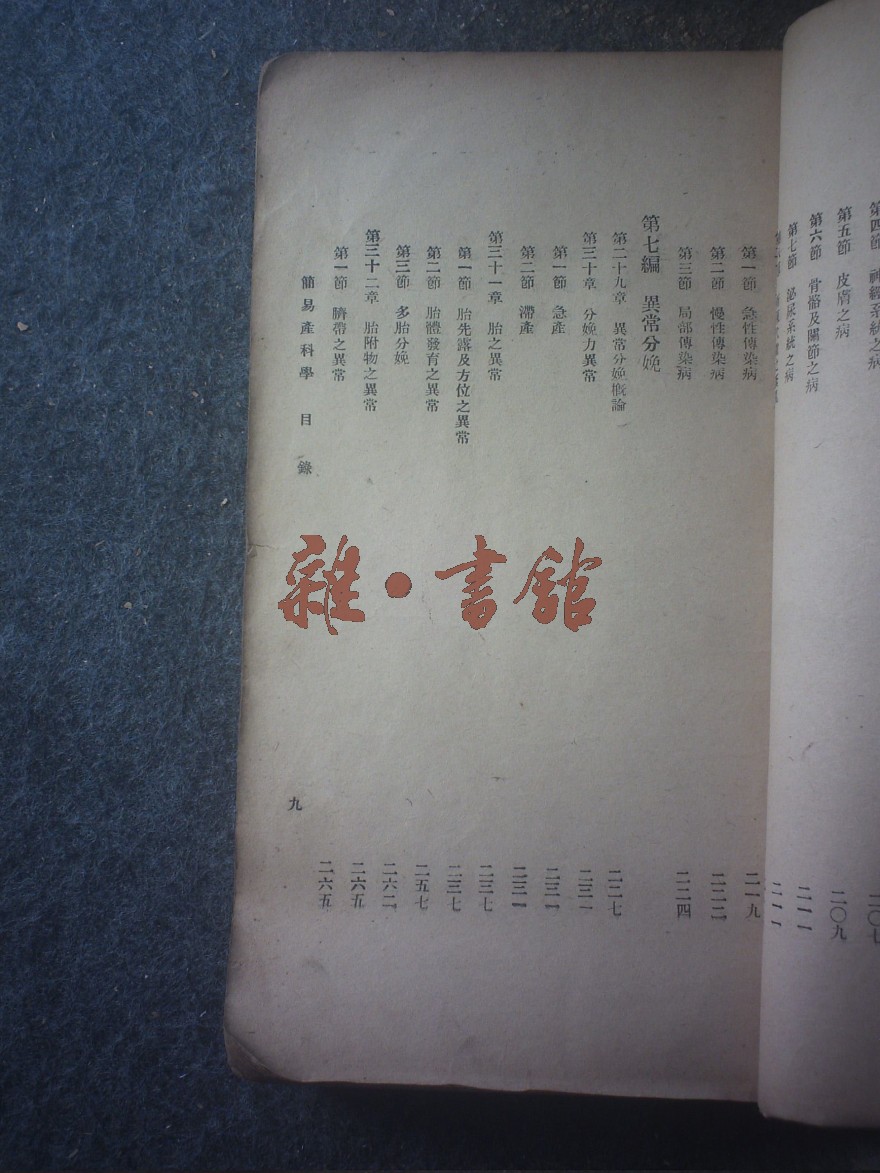 第四節　神經系統之病　二〇七
第五節　皮膚之病　二〇九
第六節　骨骼及關節之病　二一一
第七節　泌尿系統之病
第一節　急性傳染病　二一九
第二節　慢性傳染病　二二二
第三節　局部傳染病　二二四
第七編　異常分娩
第二十九章　異常分娩概論　二二七
第三十章　分娩力異常　二三一
第一節　急產　二三一
第二節　滯產　二三一
第三十一章　胎之異常　二三七
第一節　胎先露及方位之異常　二三七
第二節　胎體發育之異常　二五七
第三節　多胎分娩　二六二
第三十二章　胎附物之異常　二六五
第一節　臍帶之異常　二六五
簡易產科學　目錄　九
雜·書館